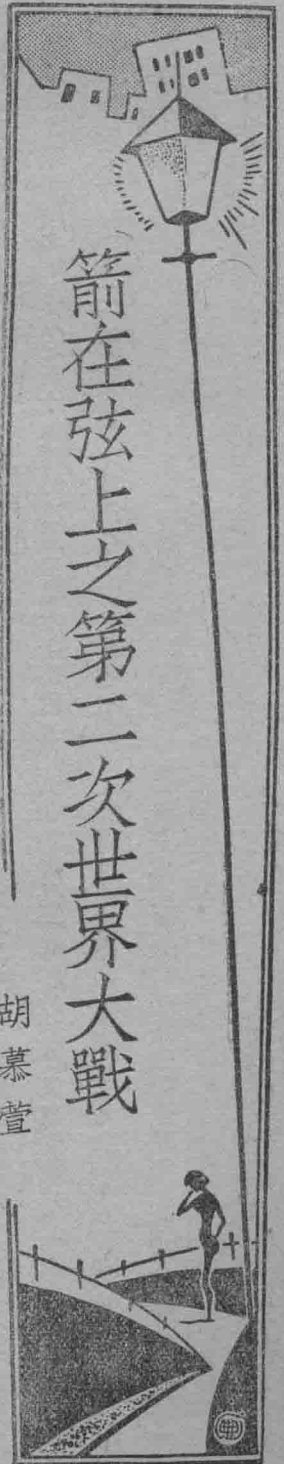 箭在弦上之第二次世界大戰
胡慕萱